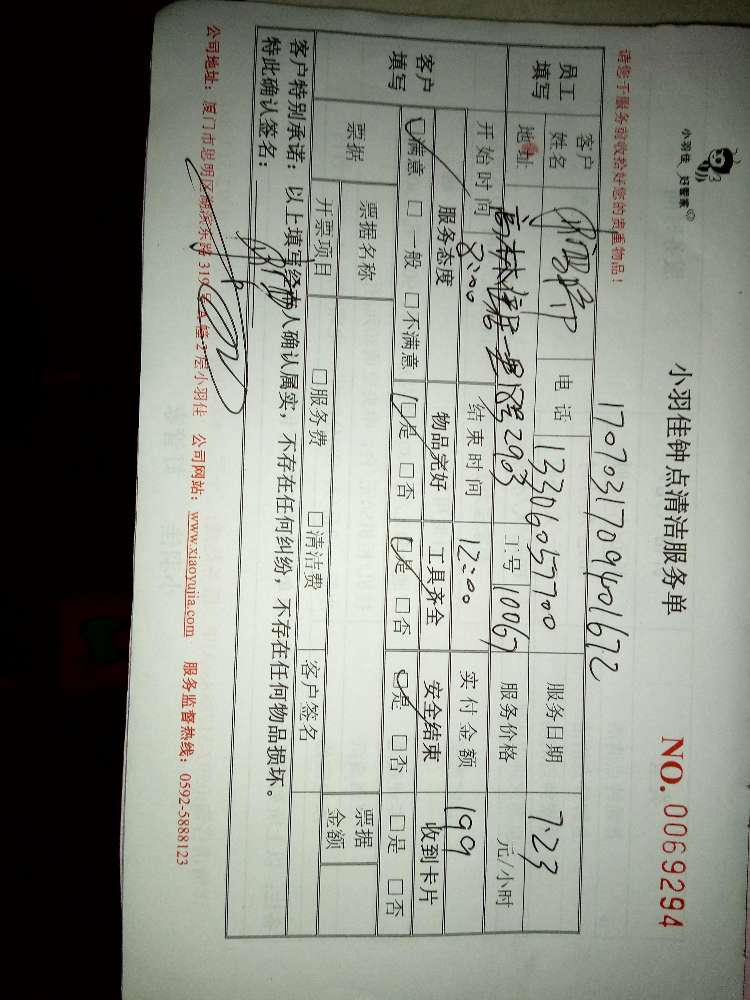 小羽佳 好管家
小羽佳钟点清洁服务单
NO. 0069294
请您于服务前收拾好您的贵重物品！
1707031709401672
员工填写
客户姓名
电话 13306057700
服务日期 7.23
地址 高林居住一里 2903
工号 10067
服务价格 元/小时
开始时间 8:00
结束时间 12:00
实付金额 199
客户填写
服务态度 物品完好 工具齐全 安全结束 收到卡片
☑满意 □一般 □不满意 ☑是 □否 ☑是 □否 ☑是 □否 □是 □否
票据 票据名称 票据金额
开票项目 □服务费 □清洁费 客户签名
客户特别承诺：以上填写经本人确认属实，不存在任何纠纷，不存在任何物品损坏。
特此确认签名：
公司地址：厦门市思明区湖滨东路319号A幢2层小羽佳 公司网站：www.xiaoyujia.com 服务监督热线：0592-5888123